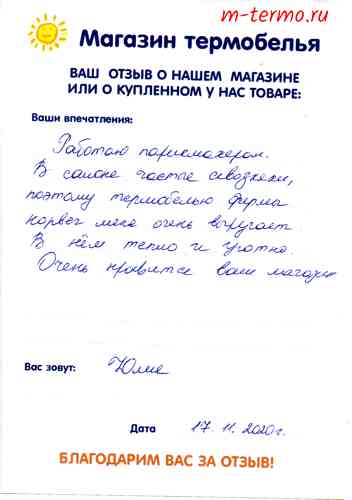 m-termo.ru
Магазин термобелья
ВАШ ОТЗЫВ О НАШЕМ МАГАЗИНЕ
ИЛИ О КУПЛЕННОМ У НАС ТОВАРЕ:
Ваши впечатления:
Работаю парикмахером.
В салоне частые сквозняки,
поэтому термобелью фирмы
норвег меня очень выручает.
В нём тепло и уютно.
Очень нравится ваш магазин
Вас зовут: Юлия
Дата 17. 11. 2020г.
БЛАГОДАРИМ ВАС ЗА ОТЗЫВ!